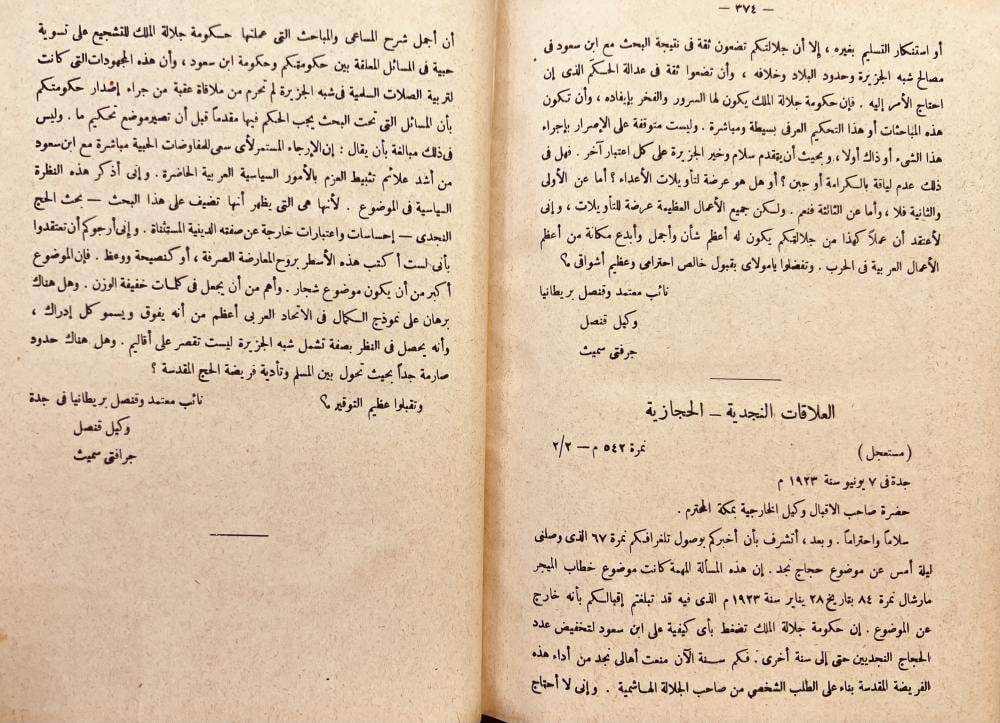 — ٣٧٤ —
أو استنكار التسليم بغيره ، إلا أن جلالتكم تضعون ثقة فى نتيجة البحث مع ابن سعود فى
مصالح شبه الجزيرة وحدود البلاد وخلافه ، وأن تضعوا ثقة فى عدالة الحكم الذى إن
احتاج الأمر إليه . فإن حكومة جلالة الملك يكون لها السرور والفخر بإيفاده ، وأن تكون
هذه المباحثات أو هذا التحكيم العرفى بسيطة ومباشرة . وليست متوقفة على الإصرار بإجراء
هذا الشىء أو ذاك أولا ، وبحيث أن يتقدم سلام وخير الجزيرة على كل اعتبار آخر . فهل فى
ذلك عدم لياقة بالكرامة أو جبن ؟ أو هل هو عرضة لتأويلات الأعداء ؟ أما عن الأولى
والثانية فلا ، وأما عن الثالثة فنعم . ولكن جميع الأعمال العظيمة عرضة للتأويلات ، وإنى
لأعتقد أن عملا كهذا من جلالتكم يكون له أعظم شأن وأجمل وأبدع مكانة من أعظم
الأعمال العربية فى الحرب . وتفضلوا يامولاى بقبول خالص احترامى وعظيم أشواقى ؟
نائب معتمد وقنصل بريطانيا
وكيل قنصل
جرفتى سميث
العلاقات النجدية – الحجازية
(مستعجل) نمرة ٥٤٢ م — ٢/٢
جدة فى ٧ يونيو سنة ١٩٢٣ م
حضرة صاحب الاقبال وكيل الخارجية بمكة المحترم .
سلاماً واحتراماً . وبعد ، أتشرف بأن أخبركم بوصول تلغرافكم نمرة ٦٧ الذى وصلنى
ليلة أمس عن موضوع حجاج نجد . إن هذه المسألة المهمة كانت موضوع خطاب الميجر
مارشال نمرة ٨٤ بتاريخ ٢٨ يناير سنة ١٩٢٣ م الذى فيه قد تبلغتم إقبالكم بأنه خارج
عن الموضوع . إن حكومة جلالة الملك تضغط بأى كيفية على ابن سعود لتخفيض عدد
الحجاج النجديين حتى إلى سنة أخرى . فكم سنة الآن منعت أهالى نجد من أداء هذه
الفريضة المقدسة بناء على الطلب الشخصى من صاحب الجلالة الهاشمية . وإنى لا أحتاج
أن أجمل شرح المساعى والمباحث التى عملتها حكومة جلالة الملك للتشجيع على تسوية
حبية فى المسائل المعلقة بين حكومتكم وحكومة ابن سعود ، وأن هذه المجهودات التى كانت
لتربية الصلات السلمية فى شبه الجزيرة لم تحرم من ملاقاة عقبة من جراء إصدار حكومتكم
بأن المسائل التى تحت البحث يجب الحكم فيها مقدماً قبل أن تصير موضع تحكيم ما . وليس
فى ذلك مبالغة بأن يقال : إن الإرجاء المستمر لأى سعى للمفاوضات الحبية مباشرة مع ابن سعود
من أشد علائم تثبيط العزم بالأمور السياسية العربية الحاضرة . وإنى أذكر هذه النظرة
السياسية فى الموضوع . لأنها هى التى يظهر أنها تضيف على هذا البحث – بحث الحج
النجدى – إحساسات واعتبارات خارجة عن صفته الدينية المستثناة . وإنى أرجوكم أن تعتقدوا
بأنى لست أكتب هذه الأسطر بروح المعارضة الصرفة ، أو كنصيحة ووعظ . فإن الموضوع
أكبر من أن يكون موضوع شجار . وأهم من أن يجعل فى كلمات خفيفة الوزن . وهل هناك
برهان على نموذج الكمال فى الاتحاد العربى أعظم من أنه يفوق ويسمو كل إدراك ،
وأنه يحصل فى النظر بصفة تشمل شبه الجزيرة ليست تقصر على أقاليم . وهل هناك حدود
صارمة جداً بحيث تحول بين المسلم وتأدية فريضة الحج المقدسة ؟
وتقبلوا عظيم التوقير ؟ نائب معتمد وقنصل بريطانيا فى جدة
وكيل قنصل
جرافتى سميث